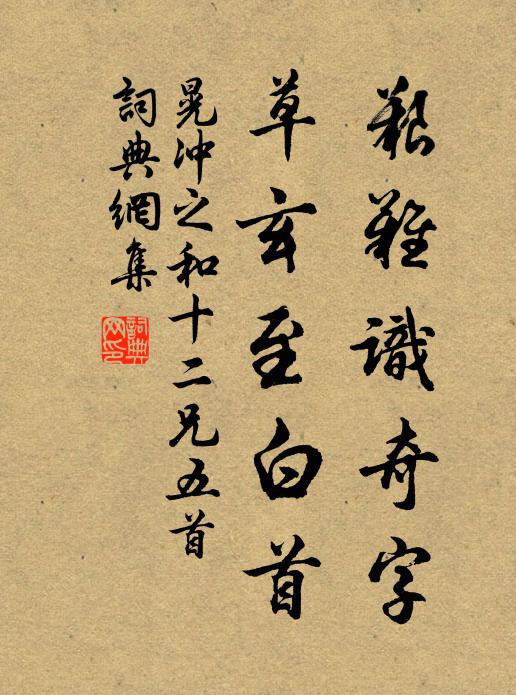 艱難識奇字
草玄至白首
晁沖之和十二兄五首
詞典網集
詞典網印